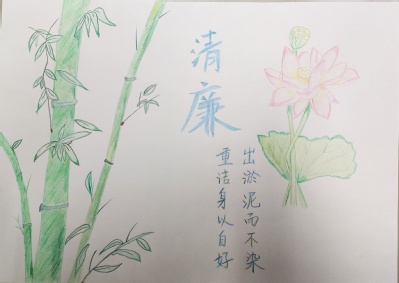 清廉
出淤泥而不染
重洁身以自好